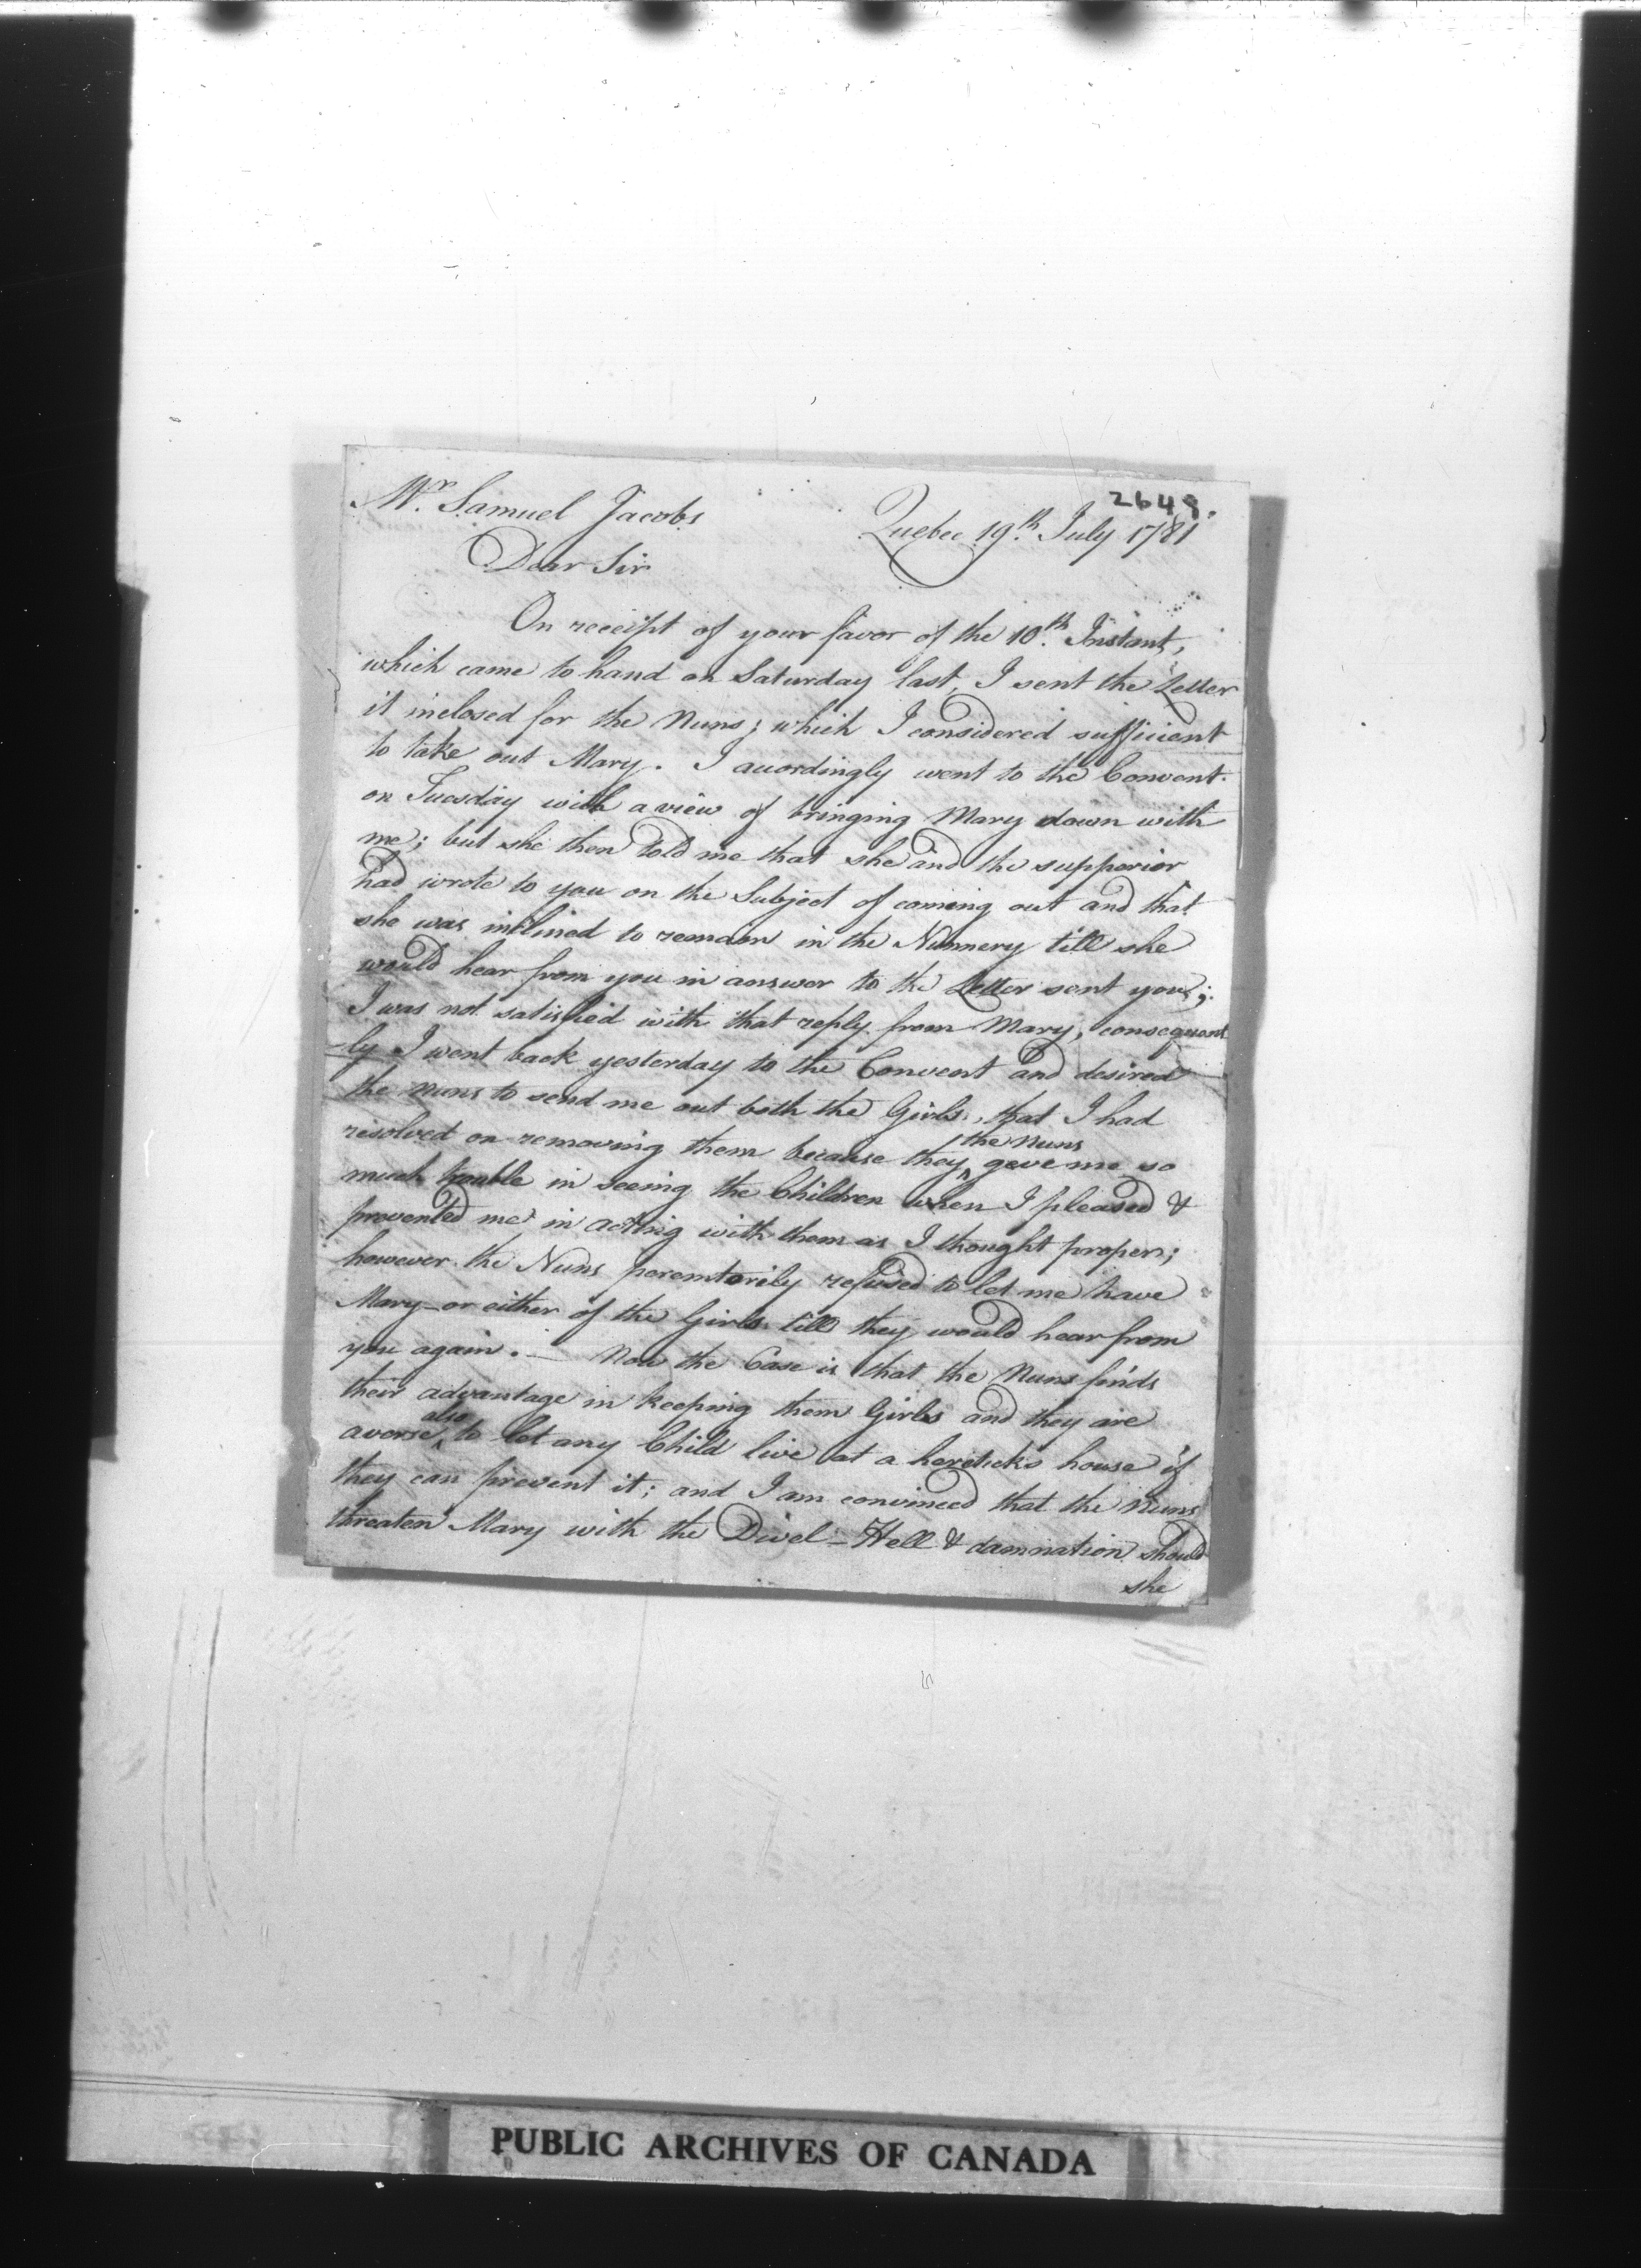 2648.
Mr. Samuel Jacobs
Quebec 19th July 1781
Dear Sir
On receipt of your favor of the 10th Instant,
which came to hand on Saturday last, I sent the Letter
it inclosed for the Nuns; which I considered sufficient
to take out Mary. I accordingly went to the Convent
on Tuesday with a view of bringing Mary down with
me; but she then told me that she and the supperior
had wrote to you on the Subject of coming out and that
she was inclined to remain in the Nunnery till she
would hear from you in answer to the Letter sent you;
I was not satisfied with that reply from Mary, consequent
-ly I went back yesterday to the Convent and desired
the nuns to send me out both the Girls, that I had
resolved on removing them because they the nuns gave me so
much trouble in seeing the Children when I pleased &
prevented me in acting with them as I thought proper;
however the Nuns peremtorily refused to let me have
Mary or either of the Girls till they would hear from
you again. — Now the Case is that the Nuns finds
their advantage in keeping them Girls and they are
averse also to let any Child live at a heretick's house if
they can prevent it; and I am convinced that the nuns
threaten Mary with the Divel - Hell & damnation should
she
PUBLIC ARCHIVES OF CANADA